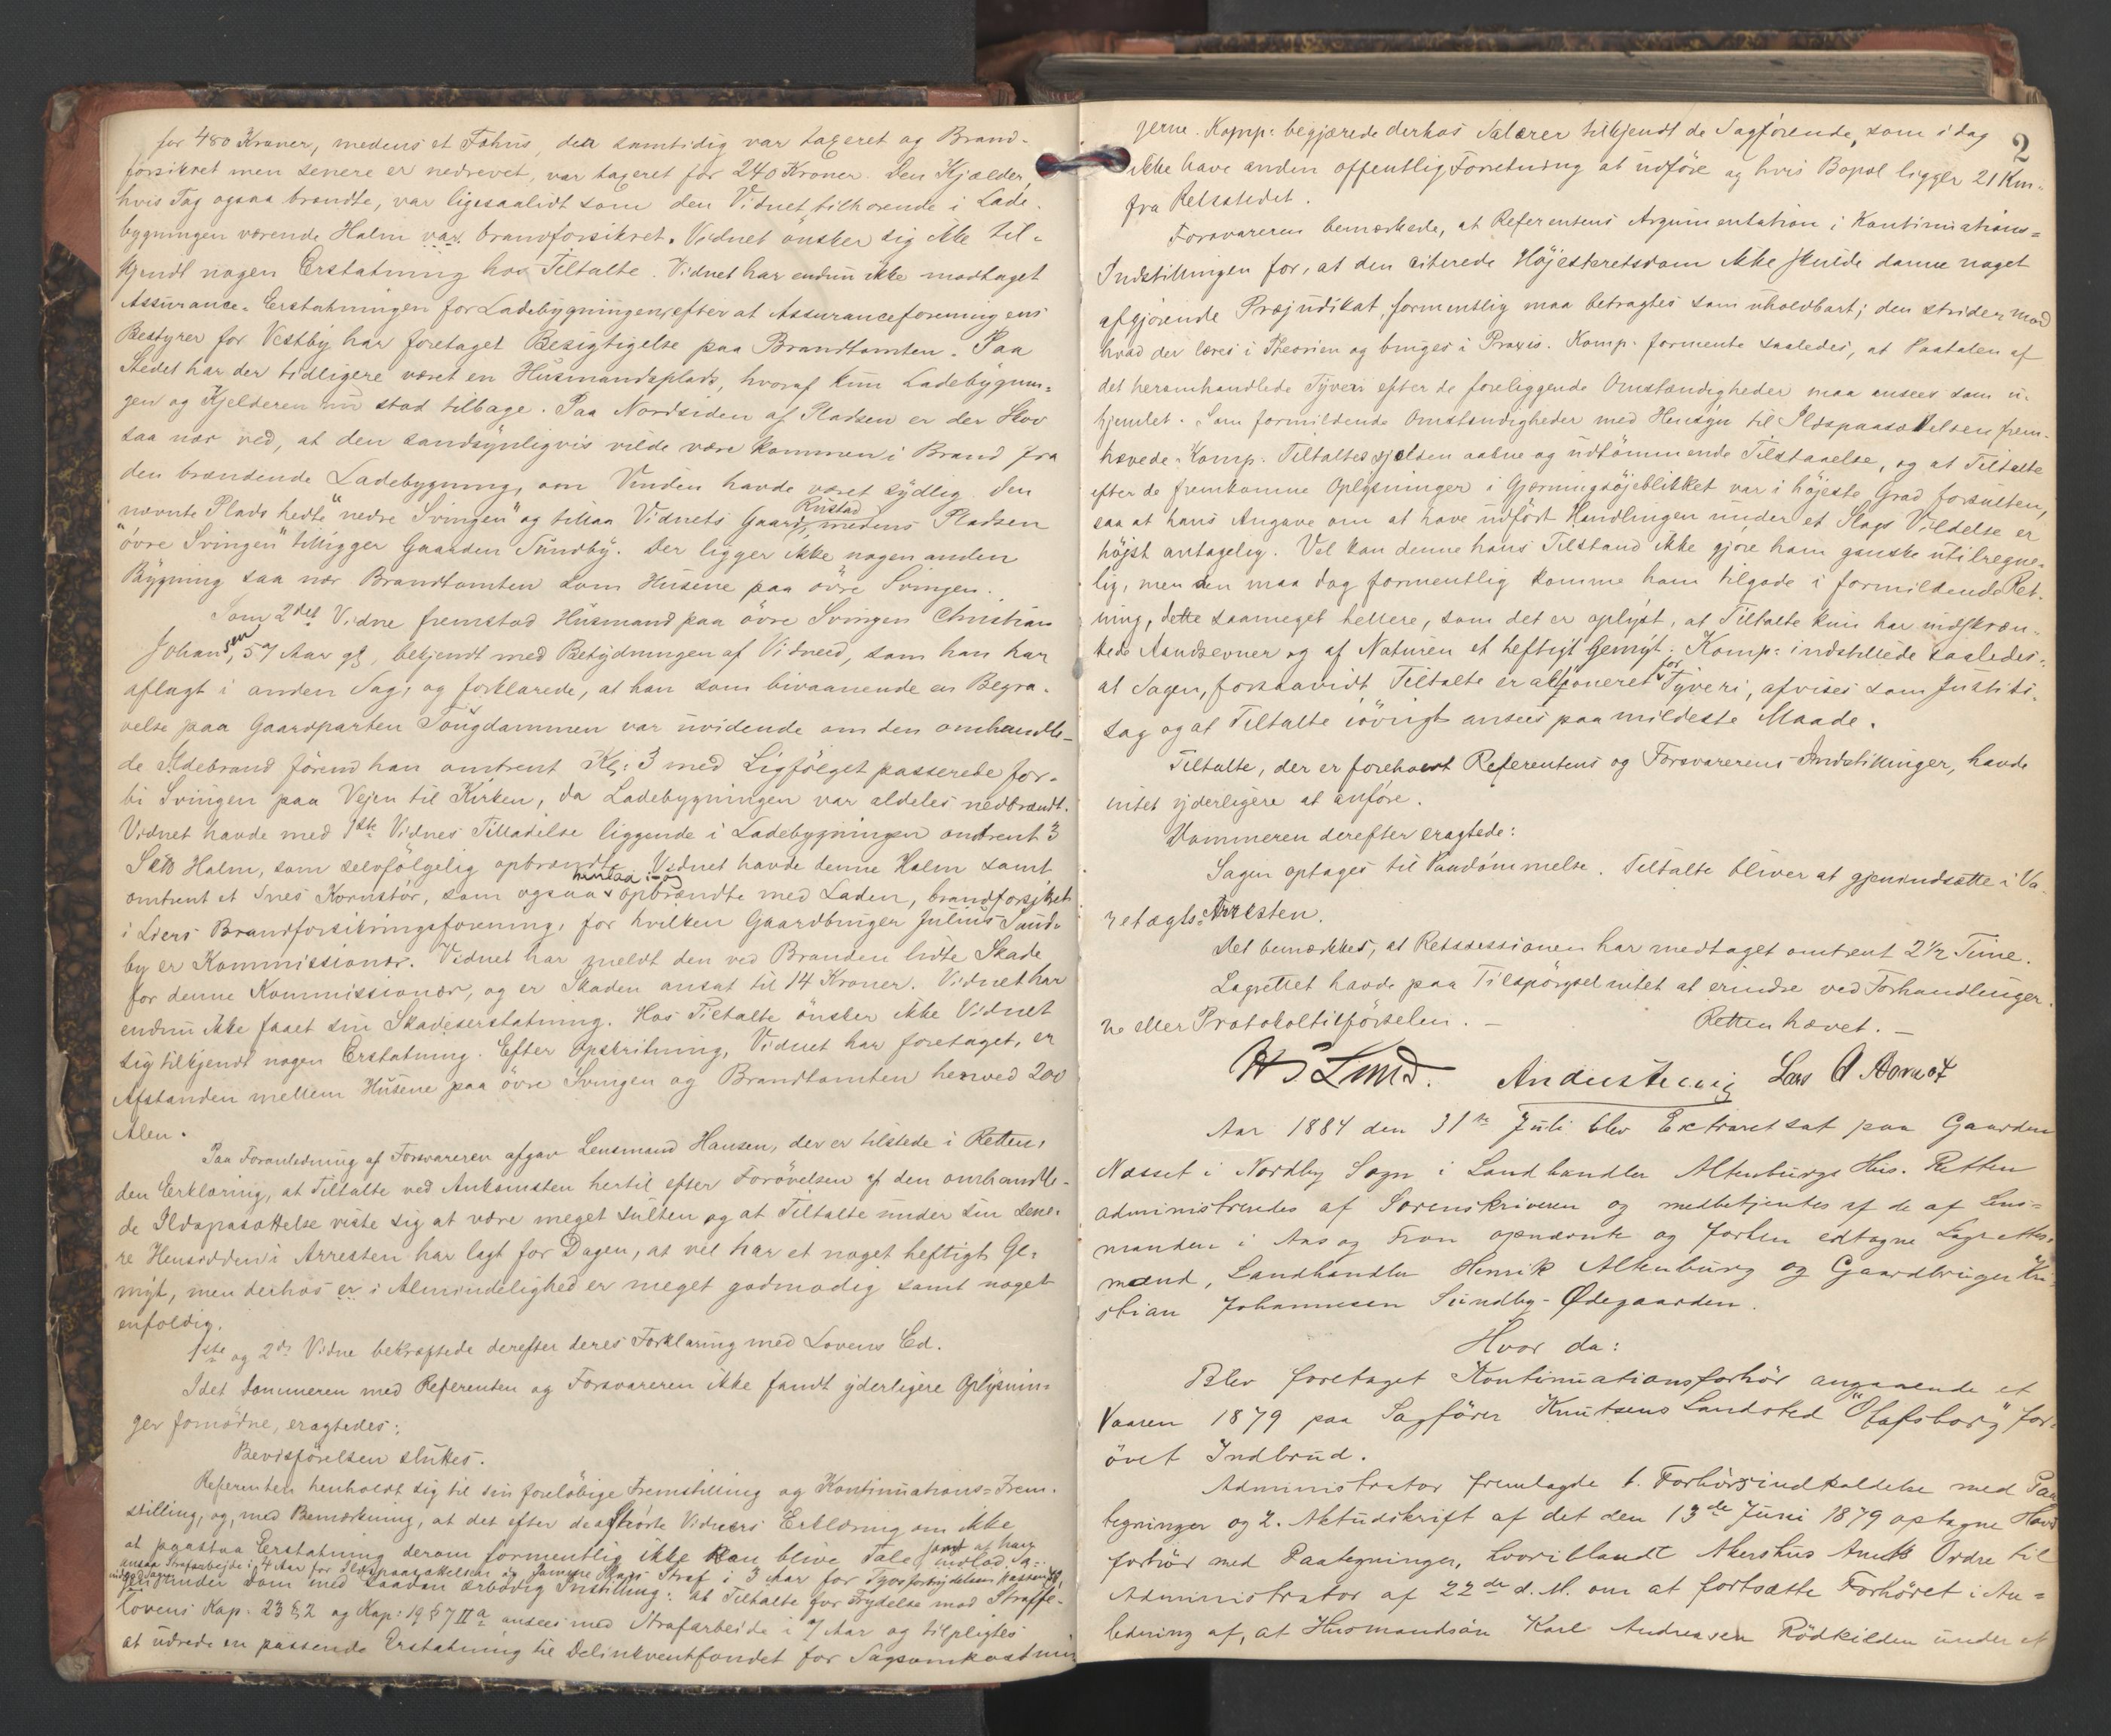 for 480 Kroner, medens et Fæhus, der samtidig var taxeret og Brand-
forsikret men senere er nedrevet, var taxeret for 240 Kroner. Den Kjælder,
hvis Tag ogsaa brandte, var ligesaalidt som den Vidnet tilhørende i Lade-
bygningen værende Halm var brandforsikret. Vidnet ønsker sig ikke til-
kjendt nogen Erstatning hos Tiltalte. Vidnet har endnu ikke modtaget
Assurance-Erstatningen for Ladebygningen, efter at Assuranceforeningens
Bestyrer for Vestby har foretaget Besigtigelse paa Brandtomten. Paa
Stedet har der tidligere været en Husmandsplads, hvoraf kun Ladebygnin-
gen og Kjelderen nu stod tilbage. Paa Nordsiden af Pladsen er der Skov
saa nær ved, at den sandsynligvis vilde være kommen i Brand fra
den brændende Ladebygning, om Vinden havde været sydlig. Den
nævnte Plads hedte "nedre Svingen" og tillaa Vidnets Gaard Rustad, medens Pladsen
"øvre Svingen" tilligger Gaarden Sundby. Der ligger ikke nogen anden
Bygning saa nær Brandtomten som Husene paa øvre Svingen.
Som 2det Vidne fremstod Husmand paa øvre Svingen Christian
Johansen, 57 Aar gl, bekjendt med Betydningen af Vidneed, som han har
aflagt i anden Sag, og forklarede, at han som bivaanende en Begra-
velse paa Gaardparten Tougdammen var uvidende om den omhandle-
de Ildebrand førend han omtrent Kl: 3 med Ligfølget passerede for-
bi Svingen paa Vejen til Kirken, da Ladebygningen var aldeles nedbrændt.
Vidnet havde med 1ste Vidnes Tilladelse liggende i Ladebygningen omtrent 3
Halm, som selvfølgelig opbrændte. Vidnet havde denne Halm samt
omtrent et Snes Kornstør, som ogsaa opbrændte med Laden, brandforsikret
i Liers Brandforsikringsforening, for hvilken Gaardbruger Julius Sund-
by er Kommissionær. Vidnet har meldt den ved Branden lidte Skade
for denne Kommissionær, og er Skaden ansat til 14 Kroner. Vidnet har
endnu ikke faaet sin Skadeserstatning. Hos Tiltalte ønsker ikke Vidnet
sig tilkjendt nogen Erstatning. Efter Opskritning, Vidnet har foretaget, er
Afstanden mellem Husene paa øvre Svingen og Brandtomten henved 200
Alen.
Paa Foranledning af Forsvareren afgav Lensmand Hansen, der er tilstede i Retten,
den Erklæring, at Tiltalte ved Ankomsten hertil efter Forøvelsen af den omhandle-
de Ildspaasættelse viste sig at være meget sulten og at Tiltalte under sin sene-
re Hensidden i Arresten har lagt for Dagen, at vel har et noget heftigt Ge-
myt, men derhos er i Almindelighed er meget godmodig samt noget
enfoldig.
1ste og 2det Vidne bekræftede derefter deres Forklaring med Lovens Ed.
Idet Dommeren med Referenten og Forsvareren ikke fandt yderligere Oplysnin-
ger fornødne, eragtedes:
Bevisførelsen sluttes.
Referenten henholdt sig til sin foreløbige Fremstilling og Kontinuations-Frem-
stilling, og, med Bemærkning, at det efter de afhørte Vidners Erklæring om ikke
at paastaa Erstatning derom formentlig ikke kan blive Tale
ansaa Strafarbejde i 4 Aar for Ildspaasættelsen og samme Slags Straf i 3 Aar for
under Dom med saadan ærbødig Instilling: at Tiltalte for Frydelse mod Straffe-
lovens Kap. 23 § 2 og Kap: 19 § 7 II a ansees med Strafarbeide i 7 Aar og tilpligtes
at udrede en passende Erstatning til Delinkventfondet for Sagsomkostnin
2
gerne. Komp: begjærede derhos Salærer tilkjendt de Sagførende, som i dag
ikke have anden offentlig Forretning at udføre og hvis Bopæl ligger 21 Km.
fra Retsstedet.
Forsvareren bemærkede, at Referentens Argumentation i Kontinuations-
Indstillingen for, at den citerede Højesteretsdom ikke skulde danne noget
afgjørende Præjudikat, formentlig maa betragtes som uholdbart; den strider mod
hvad der læres i Theorien og bruges i Praxis. Komp. formente saaledes, at Paatalen af
det heromhandlede Tyveri efter de foreliggende Omstændigheder maa ansees som u-
hjemlet. Som formildende Omstændigheder med Hensyn til Ildspaasættelsen frem-
hævede Komp. Tiltaltes sjelden aabne og udtømmende Tilstaaelse, og at Tiltalte
efter de fremkomne Oplysninger i Gjerningsøjeblikket var i højeste Grad forsulten,
saa at hans Angave om at have udført Handlingen under et Slags Vildelse er
højst antagelig. Vel kan denne hans Tilstand ikke gjøre ham ganske utilregne-
lig, men den maa dog formentlig komme ham tilgode i formildende Ret-
ning, dette saameget hellere, som det er oplyst, at Tiltalte kun har indskræn-
kede Aandsevner og af Naturen et heftigt Gemyt. Komp: indstillede saaledes:
at Sagen, forsaavidt Tiltalte er aktioneret for Tyveri, afvises som Justits-
sag og at Tiltalte iøvrigt ansees paa mildeste Maade.
Tiltalte, der er forehørt Referentens og Forsvarerens Indstillinger, havde
intet yderligere at anføre.
Dommeren derefter eragtede:
Sagen optages til Paadømmelse. Tiltalte bliver at gjenindsætte i Va-
retægts-Arresten.
Det bemærkes, at Retssessionen har medtaget omtrent 2½ Time.
Lagrettet havde paa Tilspørgsel intet at erindre ved Forhandlinger-
ne eller Protokoltilførselen. —
Retten hævet. —
Lars
Aar 1884 den 31te Juli blev Extraret sat paa Gaarden
Næsset i Nordby Sogn i Landhandler Altenburgs Hus. Retten
administreredes af Sorenskriveren og medbetjentes af de af Lens-
manden i Aas og Fron opnævnte og forhen edtagne Lagrettes-
mænd, Landhandler Henrik Altenburg og Gaardbruger Kri-
stian Johannesen Sundby-Ødegaarden.
Hvor da:
Blev foretaget Kontinuationsforhør angaaende et
Vaaren 1879 paa Sagfører Knutsens Landsted "Olafsborg" for-
øvet Indbrud.
Administrator fremlagde 1. Forhørsindkaldelse med Paa
tegninger og 2. Aktudskrift af det den 13de Juni 1879 optagne Hoved
forhør med Paategninger, hvoriblandt Akershus Amts Ordre til
Administrator af 22de d. M. om at fortsætte Forhøret i An-
ledning af, at Husmandssøn Karl Andreasen Rødkilden under et